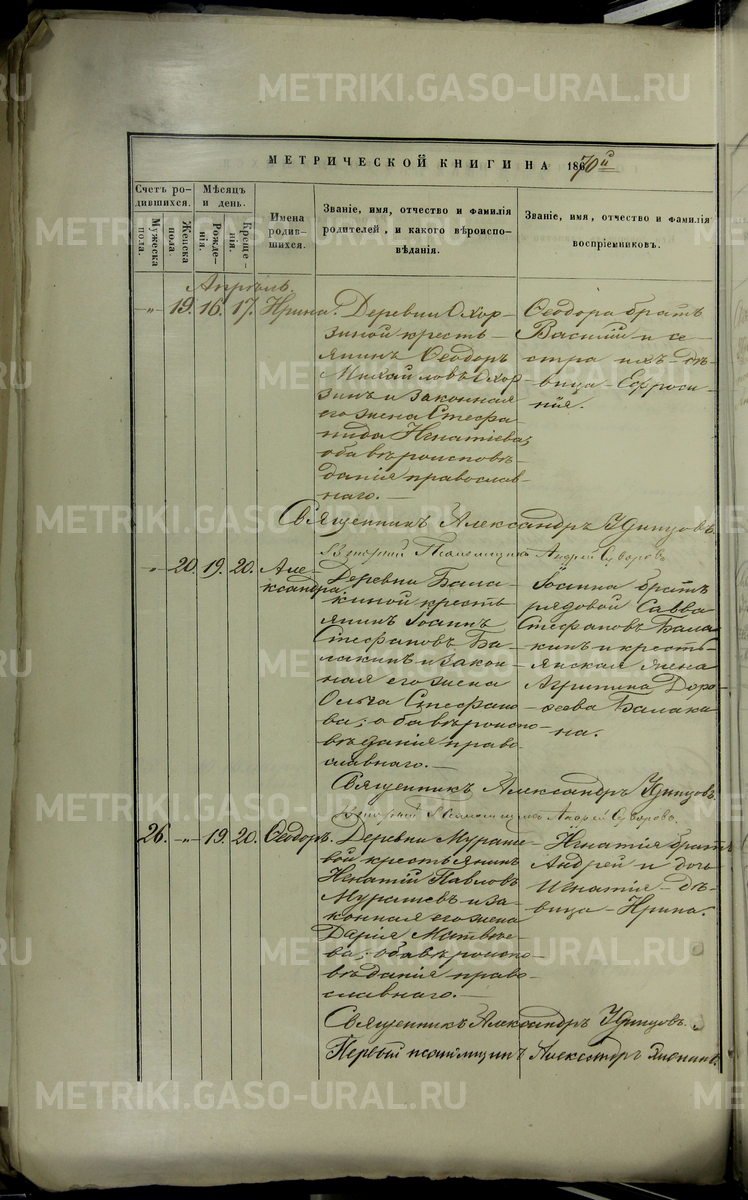 МЕТРИЧЕСКОЙ КНИГИ НА 1870й
Счетъ родившихся.
Мѣсяцъ и день.
Мужеска пола.
Женска пола.
Рожденія.
Крещенія.
Имена родившихся.
Званіе, имя, отчество и фамилія родителей, и какого вѣроисповѣданія.
Званіе, имя, отчество и фамилія воспріемниковъ.
Апрѣль.
-"- 19. 16. 17. Ирина.
Деревни Охор-
зиной кресть-
янинъ Ѳеодоръ
Михайловъ Охор-
зинъ и законная
его жена Стефа-
нида Игнатіева;
оба вѣроисповѣ-
данія православ-
наго.
Ѳеодора братъ
Василій и се-
стра ихъ дѣ-
вица Ефроси-
нія.
Священникъ Александръ Удинцовъ.
Вторый Псаломщикъ Андрей Суворовъ
-"- 20. 19. 20. Але-
ксандра.
Деревни Бала-
киной кресть-
янинъ Іоаннъ
Стефановъ Ба-
лакинъ и закон-
ная его жена
Ольга Стефано-
ва; оба вѣроиспо-
вѣданія право-
славнаго.
Іоанна братъ
рядовой Савва
Стефановъ Бала-
кинъ и кресть-
янская жена
Агрипина Доро-
ѳеева Балаки-
на.
Священникъ Александръ Удинцовъ.
Вторый Псаломщикъ Андрей Суворовъ.
26. -"- 19. 20. Ѳеодоръ.
Деревни Мураше-
вой крестьянинъ
Игнатій Павловъ
Мурашевъ и за-
конная его жена
Дарія Матвѣе-
ва; оба вѣроиспо-
вѣданія право-
славнаго.
Игнатія братъ
Андрей и дочь
Игнатія дѣ-
вица Ирина.
Священникъ Александръ Удинцовъ.
Первый псаломщикъ Александръ
METRIKI.GASO-URAL.RU